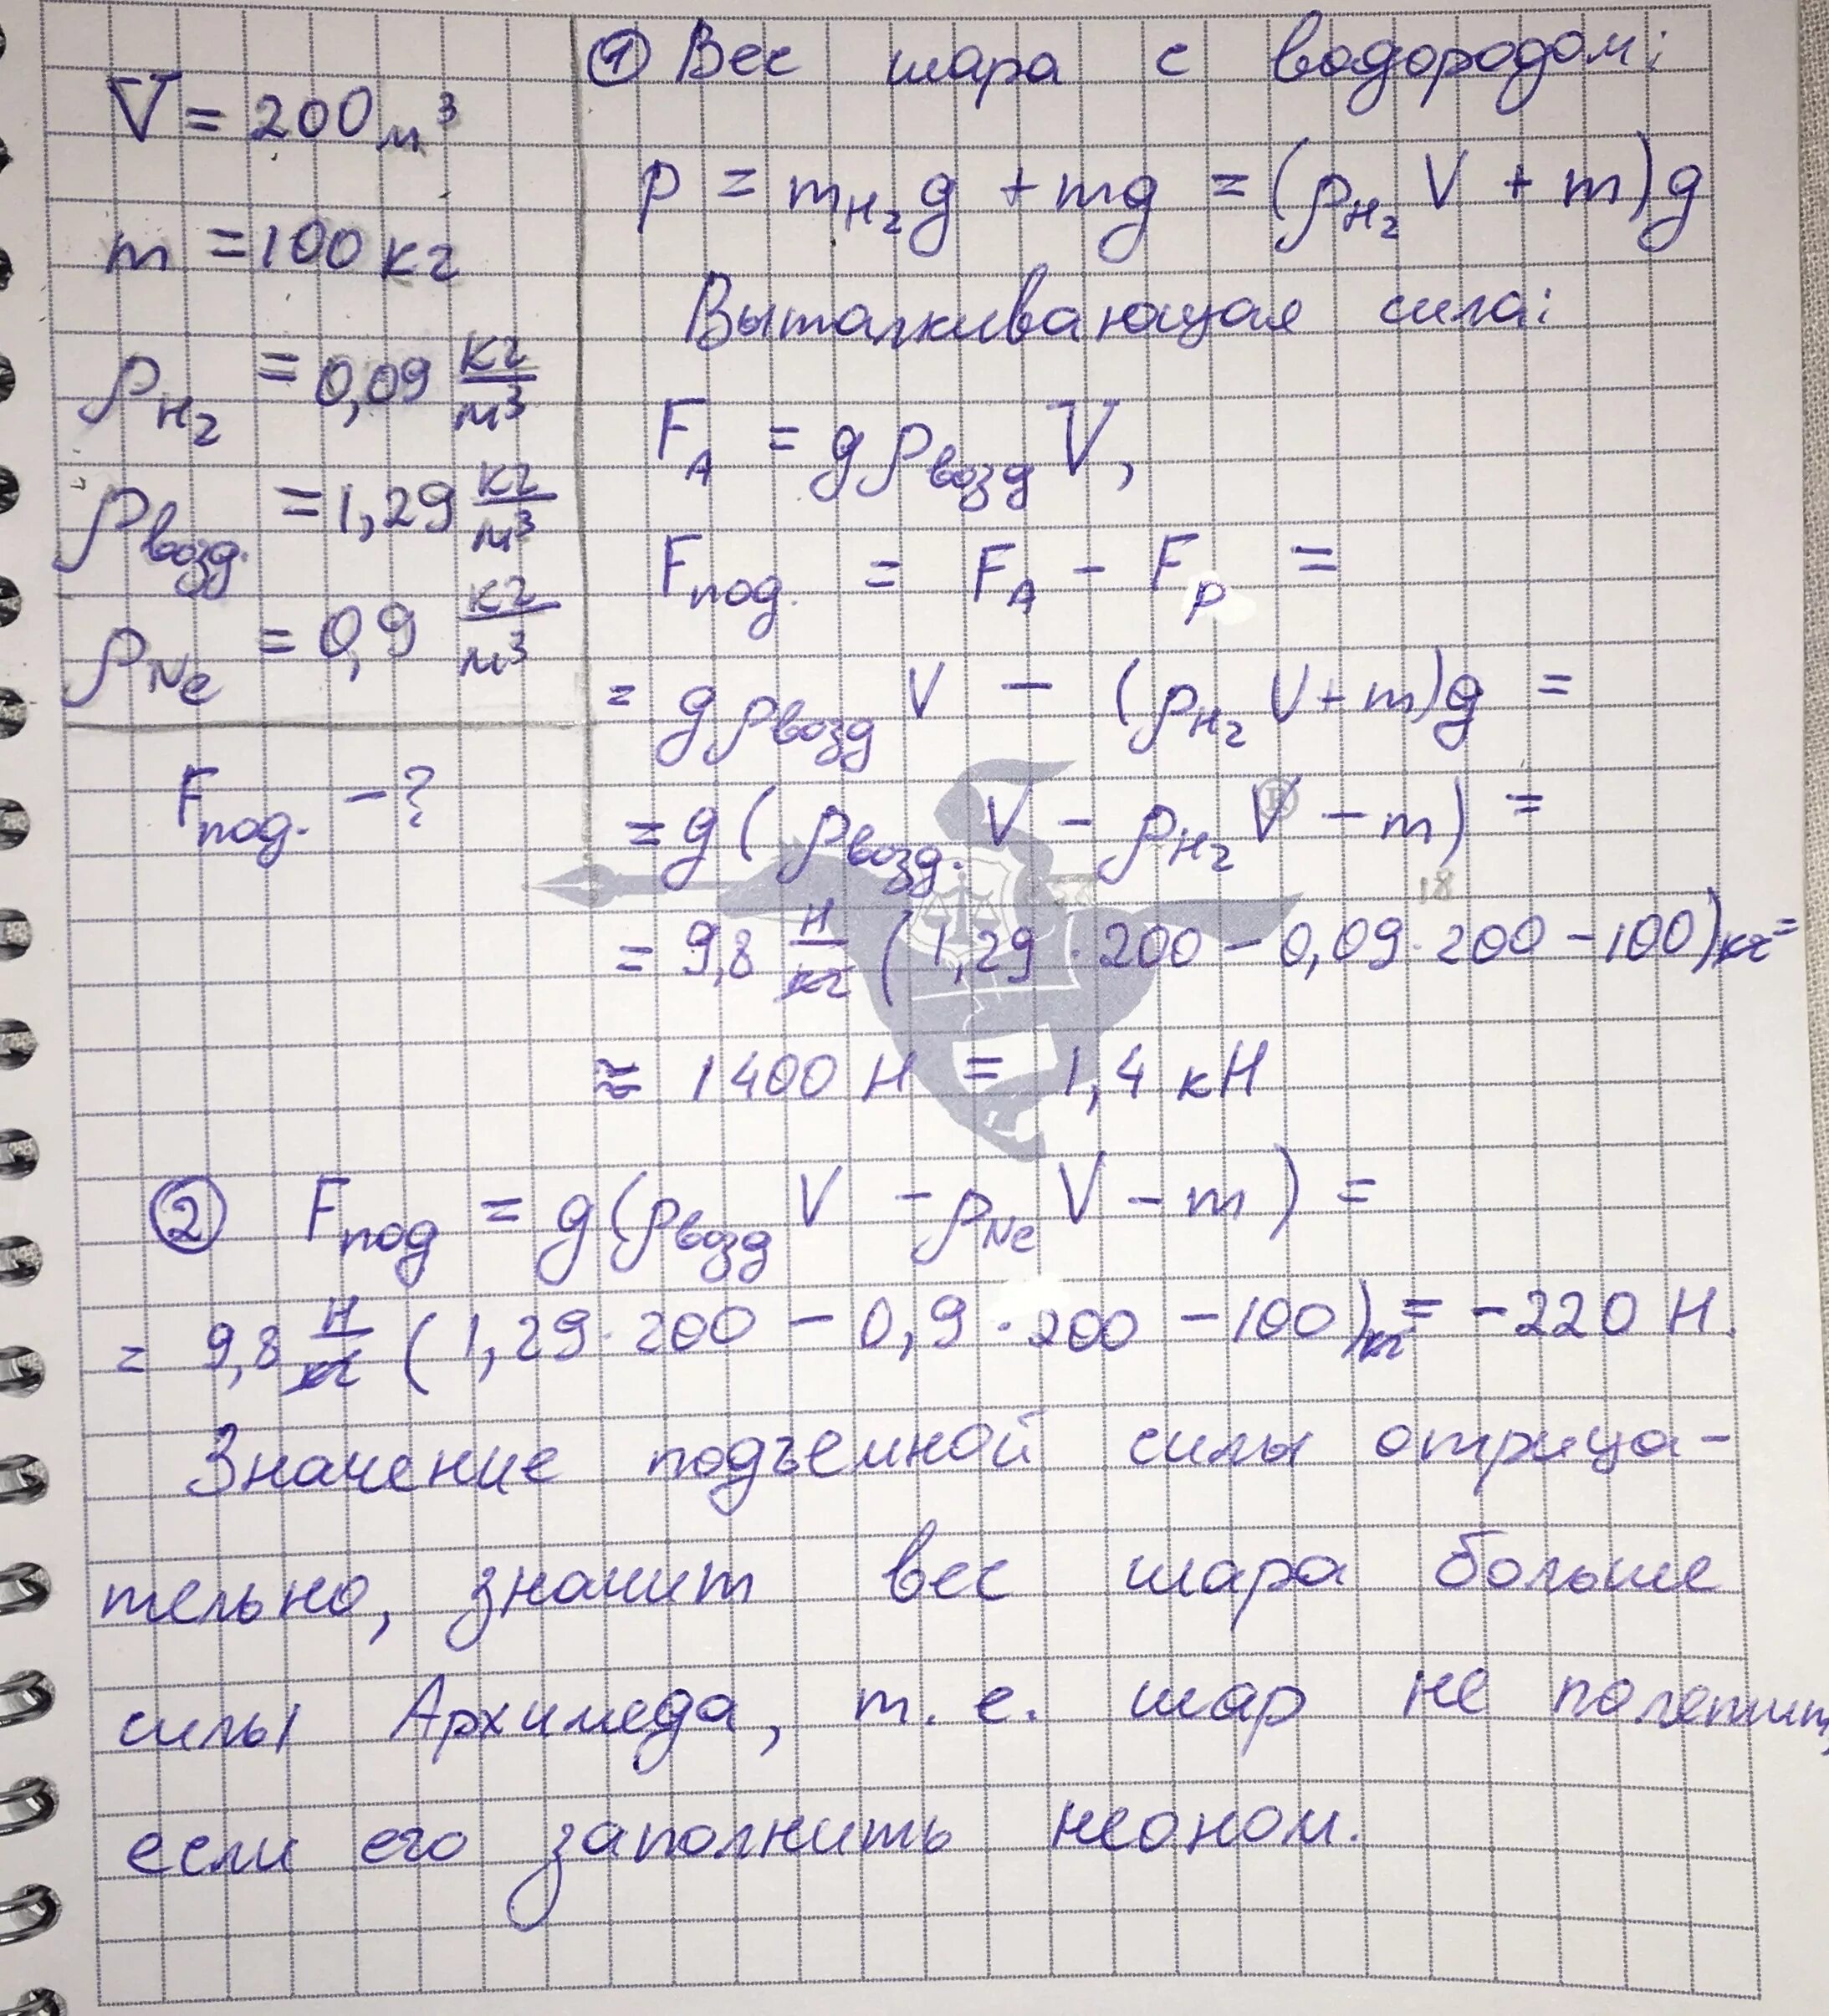 V = 200 м³
m = 100 кг
ρH₂ = 0,09 кг/м³
ρвозд. = 1,29 кг/м³
ρNe = 0,9 кг/м³
Fпод. - ?
① Вес шара с водородом:
p = mH₂g + mg = (ρH₂ V + m)g
Выталкивающая сила:
FA = gρвозд V,
Fпод. = FA - Fp =
= gρвозд V - (ρH₂ V + m)g =
= g(ρвозд. V - ρH₂ V - m) =
18
= 9,8 Н/кг (1,29 · 200 - 0,09 · 200 - 100)кг =
≈ 1400 Н = 1,4 кН
② Fпод = g(ρвозд V - ρNe V - m) =
= 9,8 Н/кг (1,29 · 200 - 0,9 · 200 - 100)кг = -220 Н.
Значение подъемной силы отрица-
тельно, значит вес шара больше
силы Архимеда, т. е. шар не полетит,
если его заполнить неоном.